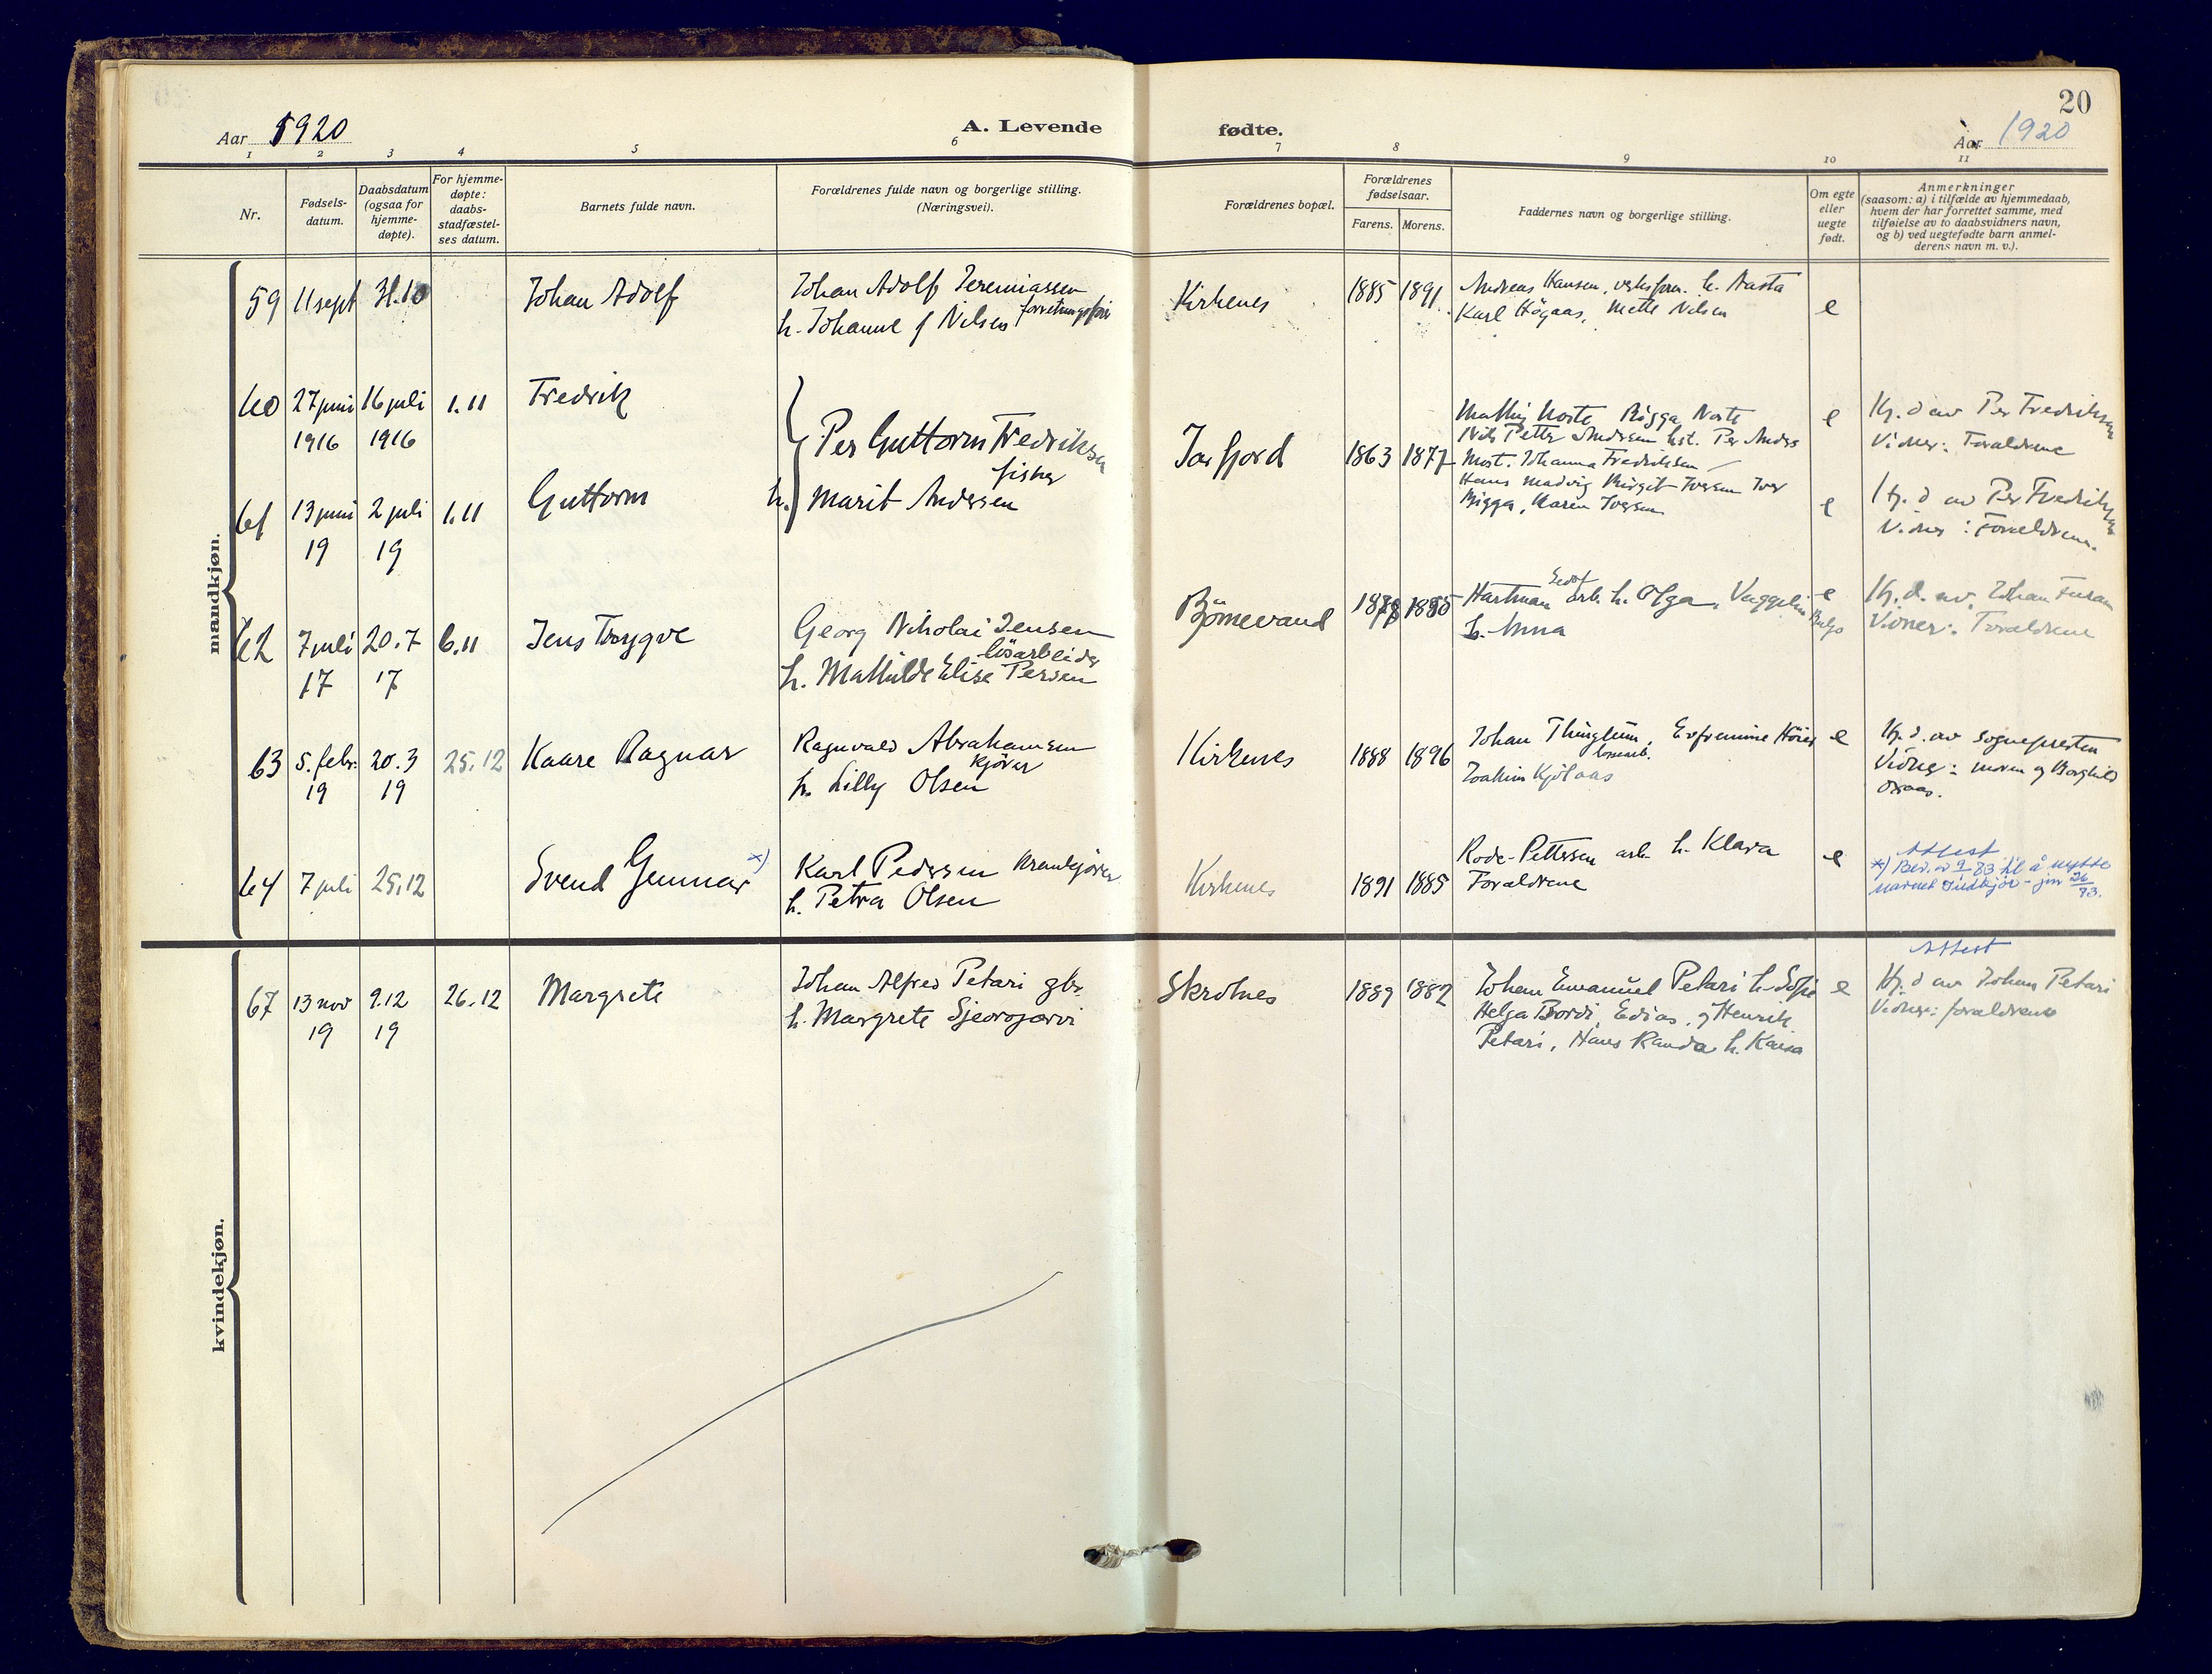 20
Aar 1920
A. Levende fødte.
Aar 1920
1 2 3 4 5 6 7 8 9 10 11
Nr.
Fødsels-
datum.
Daabsdatum
(ogsaa for
hjemme-
døpte).
For hjemme-
døpte:
daabs-
stadfæstel-
ses datum.
Barnets fulde navn.
Forældrenes fulde navn og borgerlige stilling.
(Næringsvei).
Forældrenes bopæl.
Forældrenes
fødselsaar.
Farens. Morens.
Faddernes navn og borgerlige stilling.
Om egte
eller
uegte
født.
Anmerkninger
(saasom: a) i tilfælde av hjemmedaab,
hvem der har forrettet samme, med
tilføielse av to daabsvidners navn,
og b) ved uegtefødte barn anmel-
derens navn m. v.).
mandkjøn.
59 11 sept 31.10 Johan Adolf
Johan Adolf Jeremiassen
h. Johanne f Nilsen
Kirkenes 1885 1891
Andreas Hansen, h. Aasta
Karl Högaas, Mette Nilsen
e
60 27 juni 16 juli 1.11 Fredrik
1916 1916
61 13 juni 2 juli 1.11 Guttorm
19 19
Per Guttorm Fredriksen
fisker
h. Marit Andersen
Jarfjord 1863 1877
Mathis Noste Bigga Noste
Nils Petter Andersen Per Anders
Johanna Fredriksen
Hans Madvig Birgit Iversen Iver
Bigga, Karen Iversen
e
Hj. d av Per Fredriksen
Vidner: Forældrene
e
Hj. d av Per Fredriksen
Vidner: Forældrene.
62 7 juli 20.7 6.11 Jens Trygve
17 17
Georg Nikolai Jensen
lösarbeider
h. Mathilde Elise Persen
Björnevand 1878 1885
Hartman arb. h. Olga,
h. Anna
e
Hj. d. av Johan
Vidner: Forældrene
63 5. febr. 20.3 25.12 Kaare Ragnar
19 19
Ragnvald Abrahamsen
kjörer
h. Lilly Olsen
Kirkenes 1888 1896
Johan Thinglum,
Joakim Kjölaas
e
Hj. d. av sognepresten
Vidner: moren og Borghild
64 7 juli 25.12 Svend Gunnar x)
Karl Pedersen krankjörer
h. Petra Olsen
Kirkenes 1891 1885
Pettersen arb. h. Klara
Forældrene
e
Attest
x) Bev. av 9/ 83 til å nytte
navnet
kvindekjøn.
67 13 nov 9.12 26.12 Margrete
19 19
Johan Alfred Petari gbr.
h. Margrete
Skrotnes 1889 1882
Johan Emanuel Petari h. Sofie
Helga Bordi, Edias, og Henrik
Petari, Hans Randa h. Kaisa
e
Attest
Hj. d av Johan Petari
Vidner: forældrene